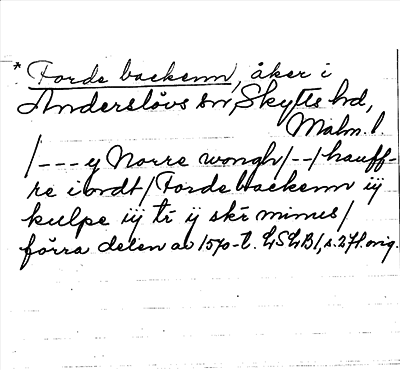 * Forde backenn, åker i
Anderslövs sn, Skytts hd,
Malm. l.
/--- y Norre wongh/--/hauff-
re iordt/Fordebackenn iÿ
kulpe iÿ tr ÿ skr minus/
förra delen av 1570-t. LSLB1, s. 271. orig.